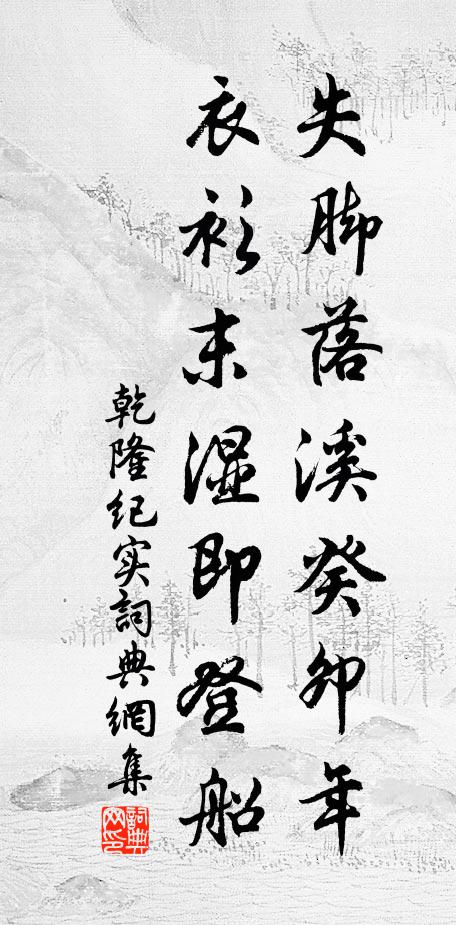 失脚落溪癸卯年
衣衫未湿即登船
乾隆纪实詞典網集
詞典網印